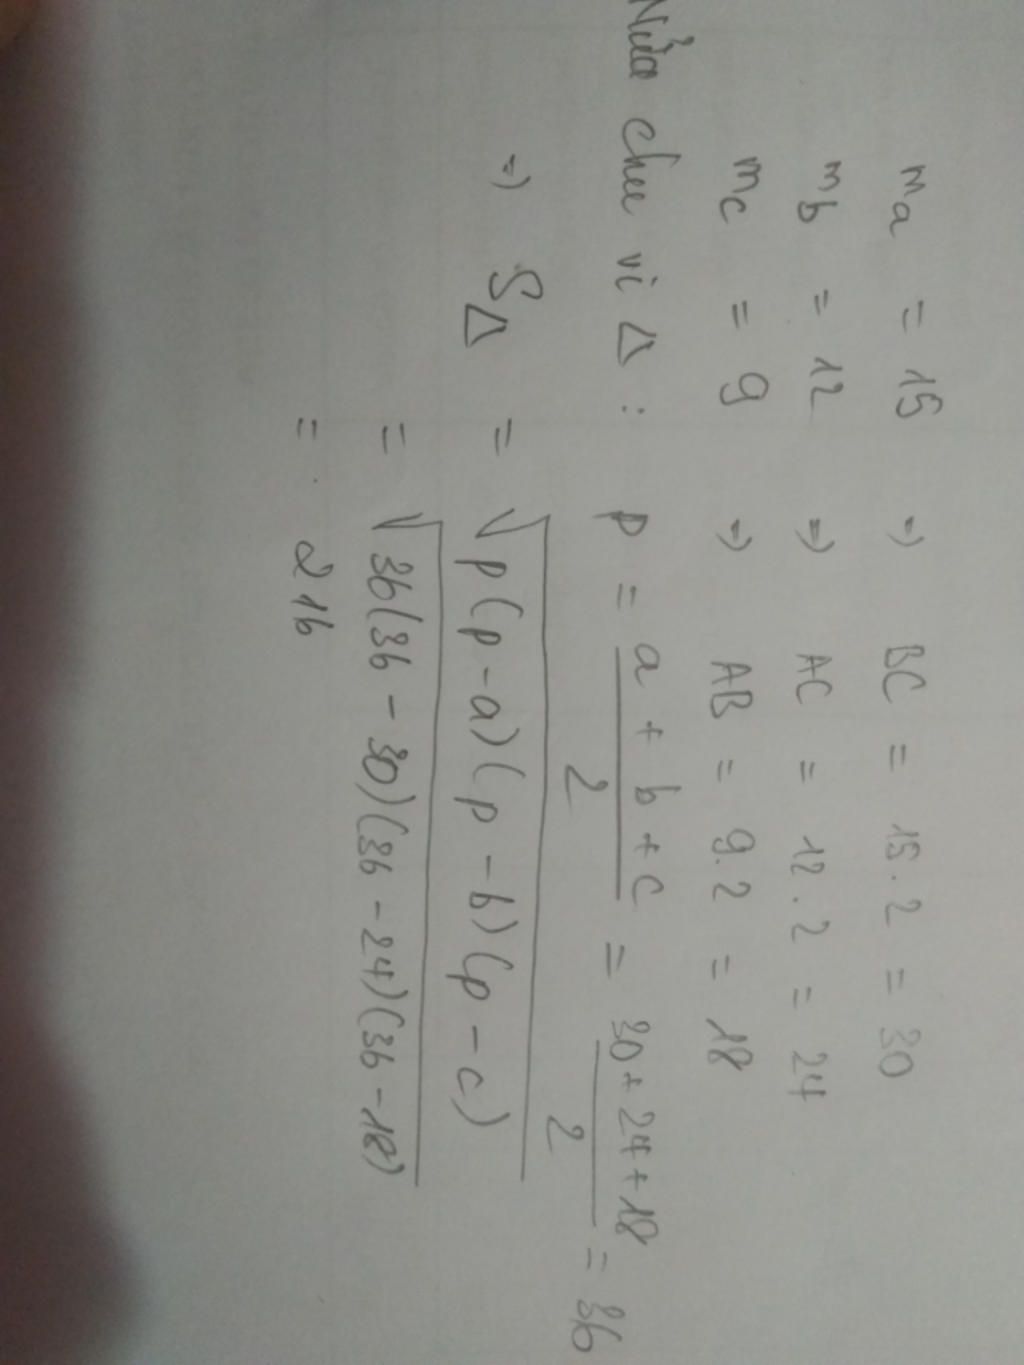 ma = 15 => BC = 15.2 = 30
mb = 12 => AC = 12.2 = 24
mc = 9 => AB = 9.2 = 18
Nửa chu vi Δ : p = a + b + c / 2 = 30 + 24 + 18 / 2 = 36
=> SΔ = √p(p - a)(p - b)(p - c)
= √36(36 - 30)(36 - 24)(36 - 18)
= 216